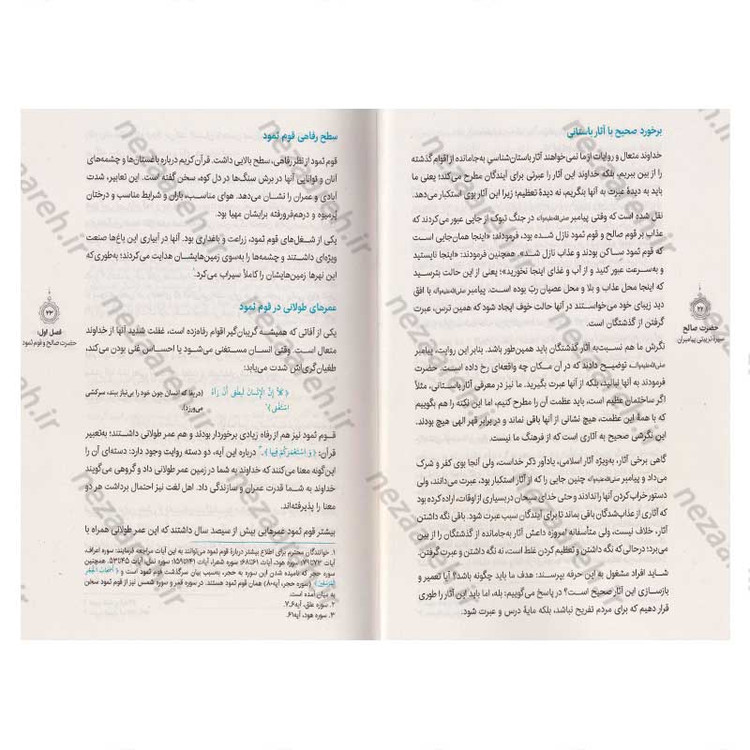 برخورد صحیح با آثار باستانی
خداوند متعال و روایات از ما نمی‌خواهند آثار باستان‌شناسی به‌جامانده از اقوام گذشته
را از بین ببریم، بلکه خداوند این آثار را عبرتی برای آیندگان مطرح می‌کند؛ یعنی ما
باید به دیدهٔ عبرت به آنها بنگریم، نه دیدهٔ تعظیم؛ زیرا این آثار بوی استکبار می‌دهد.
نقل شده است که وقتی پیامبر در جنگ تبوک از جایی عبور می‌کردند که
عذاب بر قوم صالح و قوم ثمود نازل شده بود، فرمودند: «اینجا همان‌جایی است
که قوم ثمود ساکن بودند و عذاب نازل شد». همچنین فرمودند: «اینجا نایستید
و به‌سرعت عبور کنید و از آب و غذای اینجا نخورید»؛ یعنی از این حالت بترسید
که اینجا محل عذاب و بلا و محل عصیان رب بوده است. پیامبر با افق
دید زیبای خود می‌خواستند در آنها حالت خوف ایجاد شود که همین ترس، عبرت
گرفتن از گذشتگان است.
نگرش ما هم نسبت‌به آثار گذشتگان باید همین‌طور باشد. بنابر این روایت، پیامبر
توضیح دادند که در آن مکان چه واقعه‌ای رخ داده است. حضرت
فرمودند به آنها نبالید، بلکه از آنها عبرت بگیرید. ما نیز در معرفی آثار باستانی، مثلاً
اگر ساختمان عظیم است، باید عظمت آن را مطرح کنیم، اما این نکته را هم بگوییم
که با همهٔ این عظمت، هیچ نشانی از آنها باقی نماند و در برابر قهر الهی هیچ بودند.
این نگرشی صحیح به آثاری است که از فرهنگ ما نیست.
گاهی برخی آثار، به‌ویژه آثار اسلامی، یادآور ذکر خداست، ولی آنجا بوی کفر و شرک
می‌داد و پیامبر چنین جایی را که از آثار استکبار بود، عبرت می‌دانند، ولی
دستور خراب کردن آنها را ندادند و حتی خدای سبحان در بسیاری از اوقات، اراده کرده بود
که آثاری از عذاب‌شدگان باقی بماند تا برای آیندگان سبب عبرت شود. باقی نگه داشتن
آثار، خلاف نیست، ولی متأسفانه امروزه داعش آثار به‌جامانده از گذشتگان را از بین
می‌برد؛ درحالی‌که نگه داشتن و تعظیم کردن غلط است، نه نگه داشتن و عبرت گرفتن.
شاید افراد مشغول به این حرفه بپرسند: هدف ما باید چگونه باشد؟ آیا تعمیر و
بازسازی این آثار صحیح است؟ در پاسخ می‌گوییم: بله، اما باید این آثار را طوری
قرار دهیم که برای مردم تفریح نباشد، بلکه مایهٔ درس و عبرت شود.
۲۲
حضرت صالح
سیرهٔ تربیتی پیامبران
سطح رفاهی قوم ثمود
قوم ثمود از نظر رفاهی، سطح بالایی داشت. قرآن کریم درباره باغستان‌ها و چشمه‌های
آنان و توانایی آنها در برش سنگ‌ها در دل کوه، سخن گفته است. این تعابیر، شدت
آبادی و عمران را نشان می‌دهد. هوای مناسب، باران و شرایط مناسب و درختان
پُرمیوه و درهم‌فرورفته برایشان مهیا بود.
یکی از شغل‌های قوم ثمود، زراعت و باغداری بود. آنها در آبیاری این باغ‌ها صنعت
ویژه‌ای داشتند و چشمه‌ها را به‌سوی زمین‌هایشان هدایت می‌کردند؛ به‌طوری‌که
این نهرها زمین‌هایشان را کاملاً سیراب می‌کرد.
عمرهای طولانی در قوم ثمود
یکی از آفاتی که همیشه گریبان‌گیر اقوام رفاه‌زده است، غفلت شدید آنها از خداوند
متعال است. وقتی انسان مستغنی می‌شود یا احساس غنی بودن می‌کند،
طغیان‌گری‌اش شدت می‌یابد:
﴿كَلَّا إِنَّ الْإِنسَانَ لَيَطْغَى أَن رَآهُ اسْتَغْنَى﴾
(در)بغا که انسان چون خود را بی‌نیاز بیند، سرکشی می‌ورزد).
قوم ثمود نیز هم از رفاه زیادی برخوردار بودند و هم عمر طولانی داشتند؛ به‌تعبیر
قرآن: ﴿وَ اسْتَعْمَرَكُمْ فِيهَا﴾. درباره این آیه، دو دسته روایت وجود دارد: دسته‌ای آن را
این‌گونه معنا می‌کنند که خداوند به شما در زمین عمر طولانی داد و گروهی می‌گویند
خداوند به شما قدرت عمران و سازندگی داد. اهل لغت نیز احتمال برداشت هر دو
معنا را پذیرفته‌اند.
بیشتر قوم ثمود عمرهایی بیش از سیصد سال داشتند که این عمر طولانی همراه با
۱. خوانندگان محترم برای اطلاع بیشتر دربارهٔ قوم ثمود می‌توانند به این آیات مراجعه فرمایند: سوره اعراف،
سوره حجر که نامیده شدن این سوره به حجر، به‌سبب بیان سرگذشت قوم ثمود است و
(سوره حجر، آیه۸۰) همان قوم ثمود هستند. در سوره قمر و سوره شمس نیز از قوم ثمود سخن
به میان آمده است.
۲. سوره علق، آیه۶ـ۷.
۳. سوره هود، آیه۶۱.
۲۳
فصل اول:
حضرت صالح و قوم ثمود
nezamareh.ir